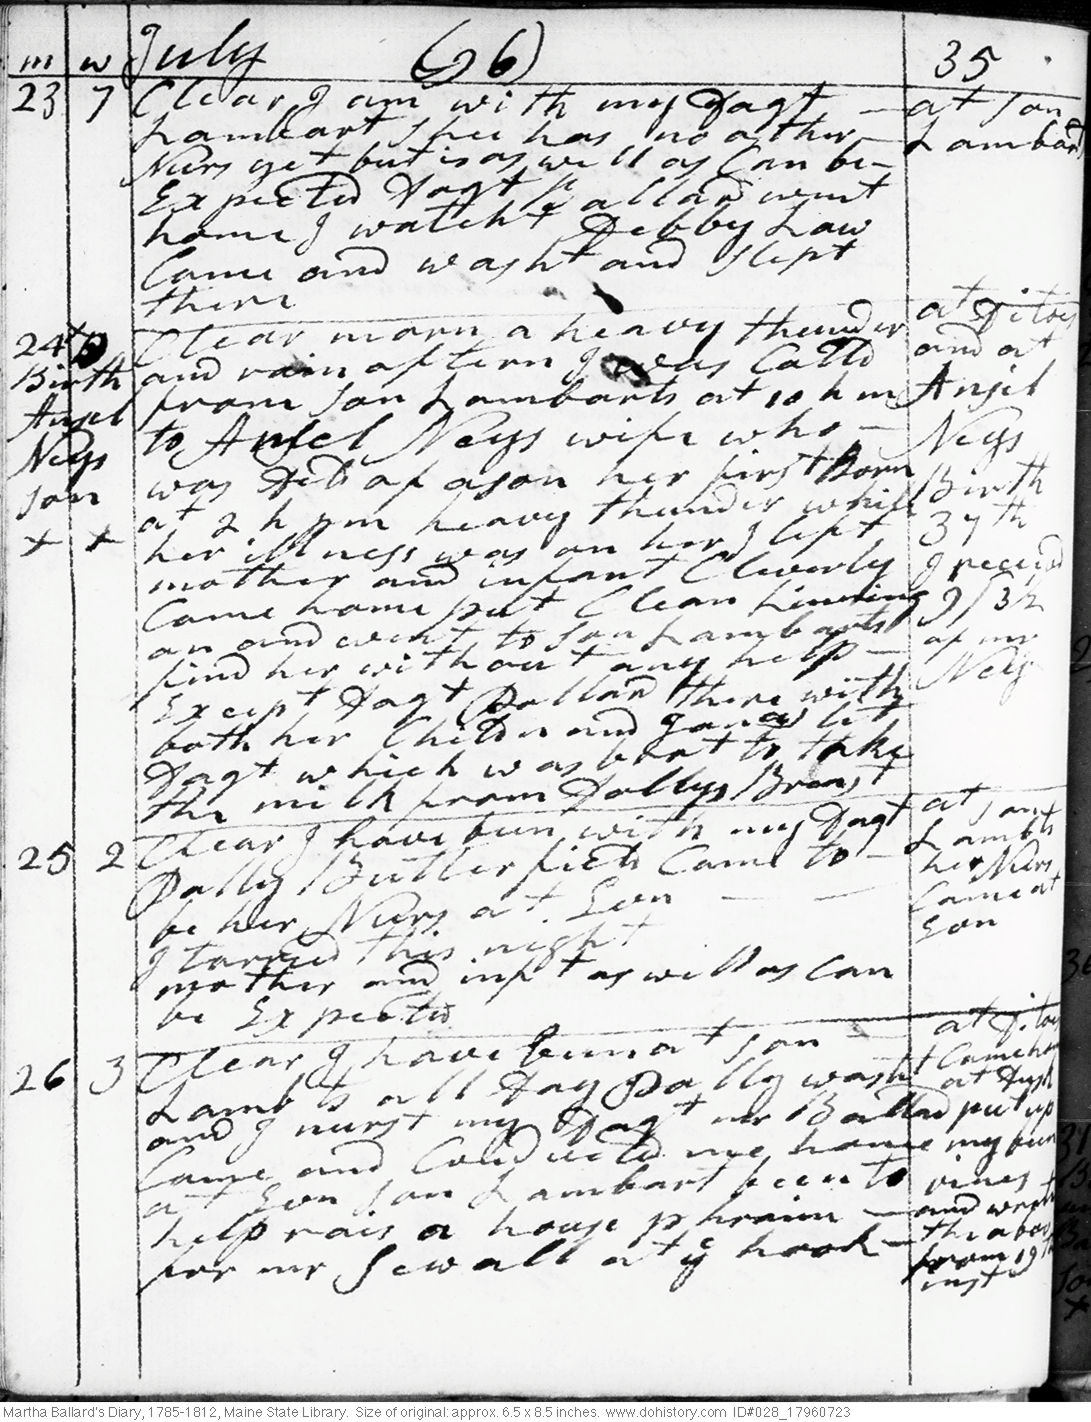 m w July (96) 35
23 7 Clear I am with my Dagt
Lambart Shee has no other
Nurs yet but is as well as Can be
Expected Dagt Pallard went
home I watcht Debby Law
Came and washt and Slept
there
at Son
Lambard
24th D
Birth
Ansel
Neys
Son
+ +
Clear morn a heavy thunder
and rain aftern I was Calld
from Son Lambarts at 10 h m
to Ansel Neys wife who
was Deld of a son her first Born
at 2 h pm heavy thunder while
her illness was on her I left
mother and infant Cleverly
Came home put Clean Linning
on and went to Son Lambarts
find her without any help
Except Dagt Pollard there with
both her Childn and
Dagt which was brot to take
the milk from Dollys Breast
at Ditos
and at
Ansel
Neys
Birth
37th
I receivd
9/ 
of mr
Ney
25 2 Clear I have been with my Dagt
Dolly Butterfield Came to
be her Nurs at Evn
I tarried this night
mother and inft as well as Can
be Expected
at Sons
Lambts
her Nurs
Came at
Evn
26 3 Clear I have been at Son
Lambts all Day Dolly washt
and I nurst my Dagt mr Ballard
Came and Conducted me home
at Evn Son Lambart been to
help rais a house phraim
for mr Sewall at ye hook
at Ditos
Came home
at Dusk
put up
my bun
vines
and wrote
the abov
from 19th
inst
Martha Ballard's Diary, 1785-1812, Maine State Library. Size of original: approx. 6.5 x 8.5 inches. www.dohistory.com ID#028_17960723